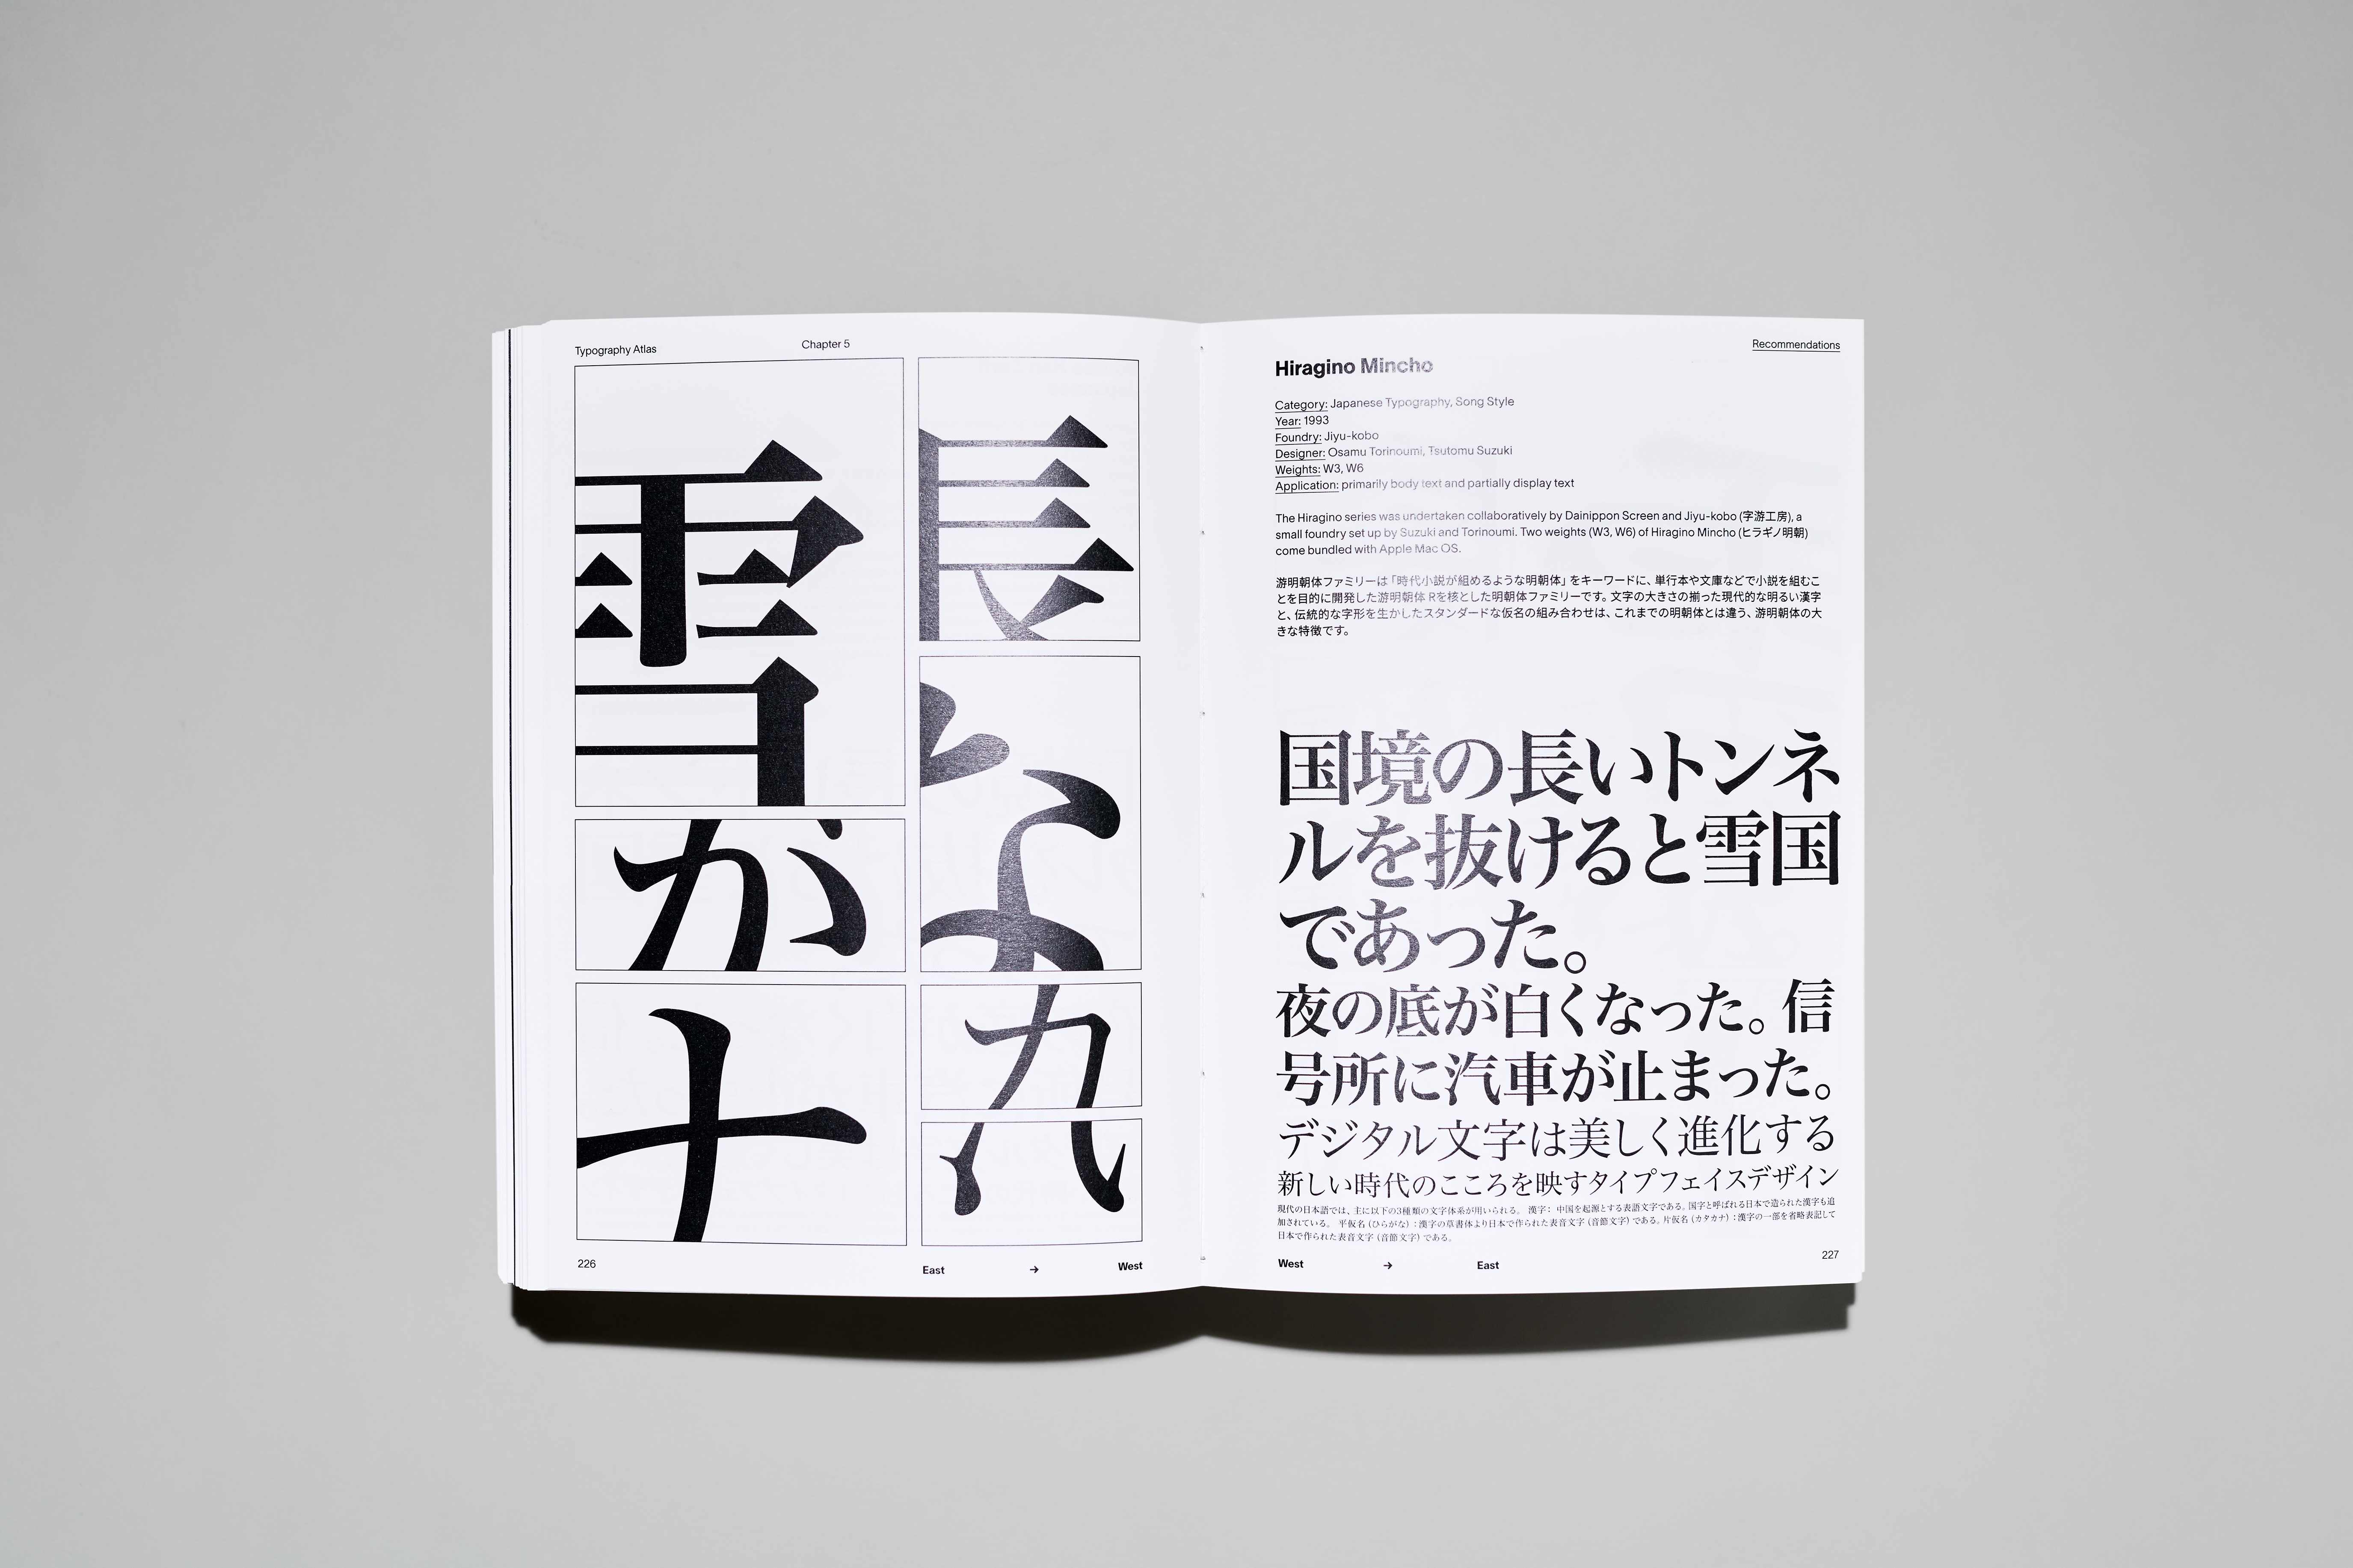 Typography Atlas
Chapter 5
雪
が
長
226
East → West
Recommendations
Hiragino Mincho
Category: Japanese Typography, Song Style
Year: 1993
Foundry: Jiyu-kobo
Designer: Osamu Torinoumi, Tsutomu Suzuki
Weights: W3, W6
Application: primarily body text and partially display text
The Hiragino series was undertaken collaboratively by Dainippon Screen and Jiyu-kobo (字游工房), a
small foundry set up by Suzuki and Torinoumi. Two weights (W3, W6) of Hiragino Mincho (ヒラギノ明朝)
come bundled with Apple Mac OS.
游明朝体ファミリーは「時代小説が組めるような明朝体」をキーワードに、単行本や文庫などで小説を組むこ
とを目的に開発した游明朝体 Rを核とした明朝体ファミリーです。文字の大きさの揃った現代的な明るい漢字
と、伝統的な字形を生かしたスタンダードな仮名の組み合わせは、これまでの明朝体とは違う、游明朝体の大
きな特徴です。
国境の長いトンネ
ルを抜けると雪国
であった。
夜の底が白くなった。信
号所に汽車が止まった。
デジタル文字は美しく進化する
新しい時代のこころを映すタイプフェイスデザイン
現代の日本語では、主に以下の3種類の文字体系が用いられる。 漢字： 中国を起源とする表語文字である。国字と呼ばれる日本で造られた漢字も追
加されている。 平仮名（ひらがな）：漢字の草書体より日本で作られた表音文字（音節文字）である。片仮名（カタカナ）：漢字の一部を省略表記して
日本で作られた表音文字（音節文字）である。
West → East
227